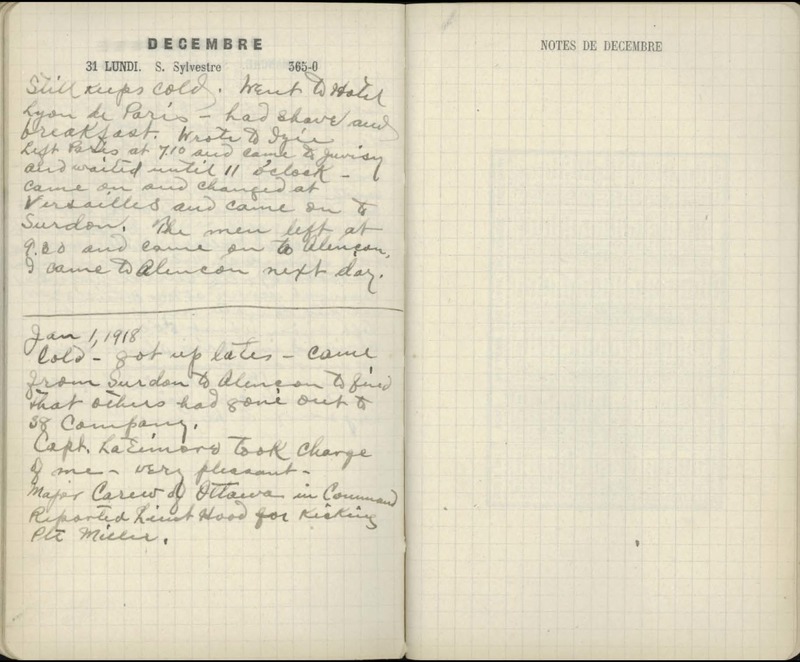 DECEMBRE
31 LUNDI. S. Sylvestre 365-0
Still keeps cold. Went to Hotel
Lyon de Paris – had shave and
breakfast. Wrote to
Left Paris at 7.10 and came to Juvisy
and waited until 11 o'clock –
came on and changed at
Versailles and came on to
Surdon. The men left at
9.00 and came on to Alençon.
I came to Alencon next day.
Jan 1, 1918
Cold – got up late – came
from Surdon to Alencon to find
that others had gone out to
38 Company.
Capt. Latimore took charge
of me – very pleasant –
Major Carew of Ottawa in Command
Reported Lieut Hood for kicking
Pte Miller.
NOTES DE DECEMBRE